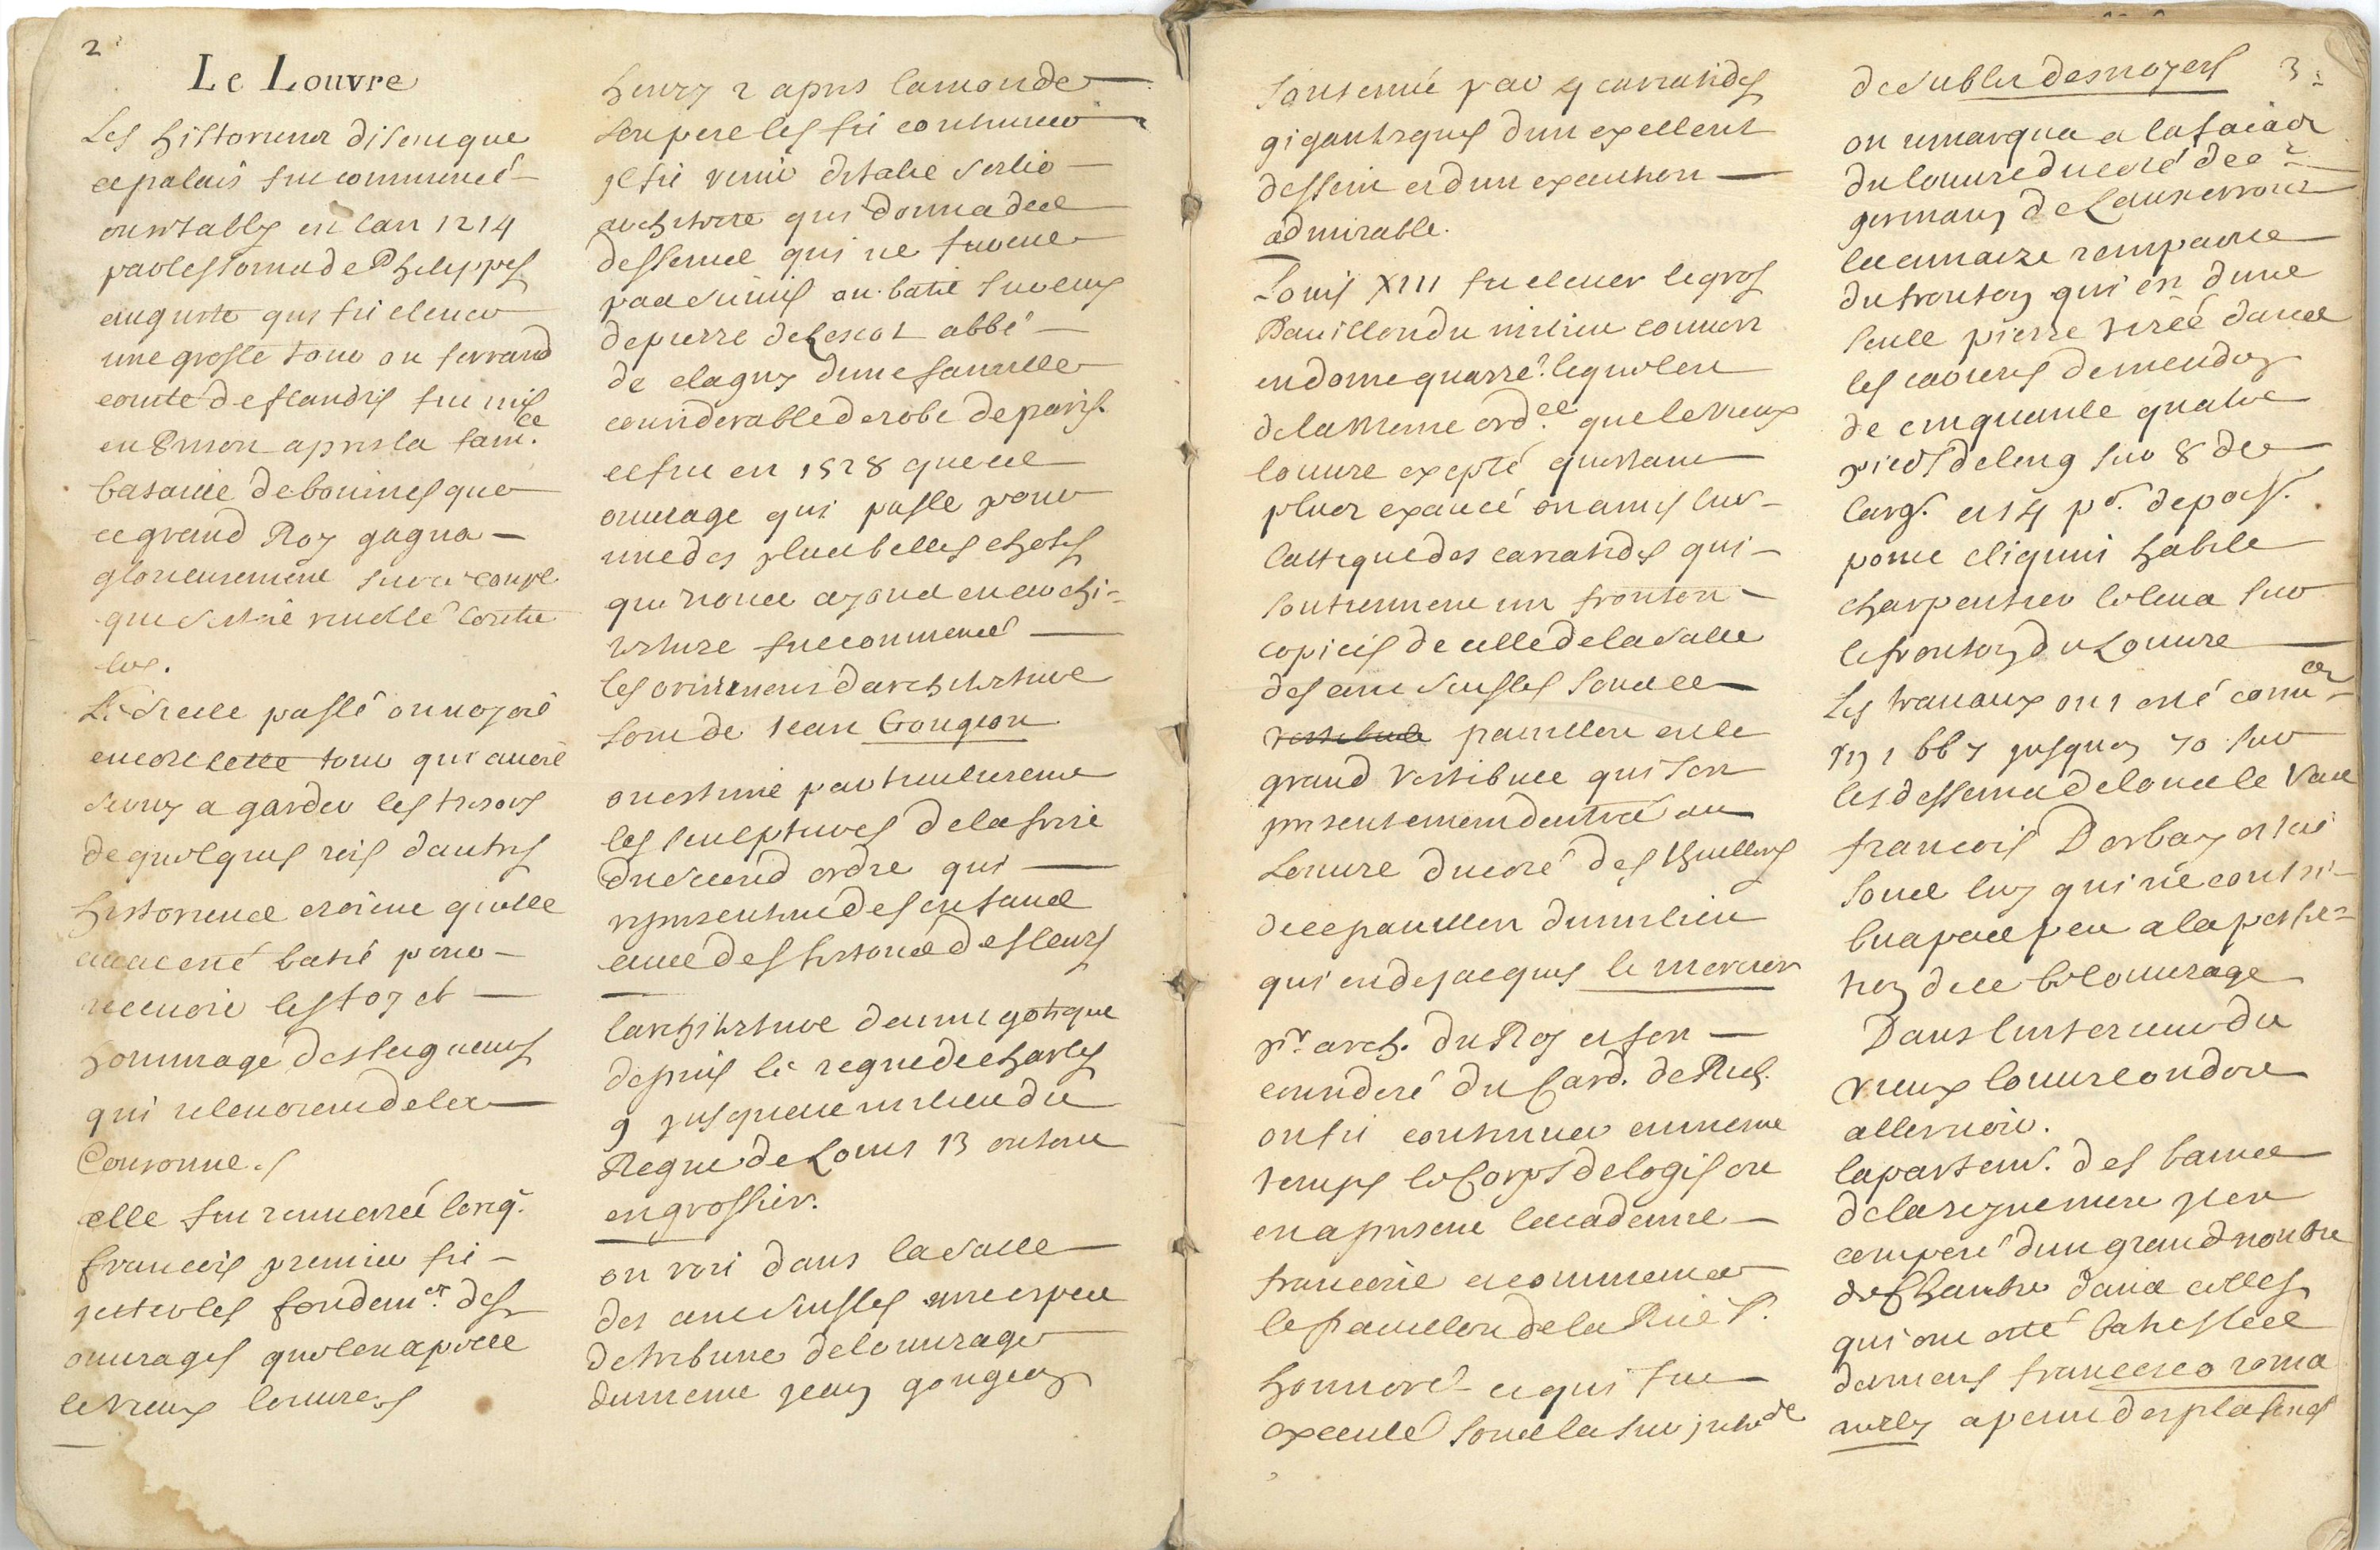 2
Le Louvre
Les historiens disent que
ce palais fut commencé
ou rétably en lan 1214
par les soins de Philippes
auguste qui fit elever
une grosse tour ou ferrand
comte de flandres fut mis
en Prison apres la fam.ce
bataille de bouines que
ce grand Roy gagna
glorieusement sur ce comte
qui s'etoit revolté contre
luy.
Le siecle passé on voyoit
encore cette tour qui avoit
servy a garder les tresors
de quelques rois dautres
historiens croient quelle
avoit esté batie pour
recevoir les foy et
hommage des seigneurs
qui relevoient de la
Couronne.
elle fut renversée lorsq.
francois premier fit
jetter les fondem.ts des
ouvrages quolen apelle
le vieux louvre
henry 2 apres la mort de
son pere les fit continuer
jl fit venir ditalie Serlio
architecte qui donna des
desseins qui ne furent
pas suivis on batit sur ceux
de pierre de Lescot abbé
de clagny dune famille
considerable de robe de paris.
ce fut en 1528 que cet
ouvrage qui passe pour
une des plus belles choses
que nous ayons en archi-
tecture fut commencé
les ornemens darchitecture
sont de Jean Gougeon
on estime particulierement
les sculptures de la frise
du second ordre qui
representent des enfans
avec des festons de fleurs
larchitecture demi gotique
depuis le regne de charles
9 jusques au milieu du
Regne de Louis 13 on tout
en grossier.
on voit dans la salle
des cent suisses une espece
de tribune de louvrage
du meme jean gougeon
soutenue par 4 cariatides
gigantesques dun exellent
dessein et dun execution
admirable.
Louis XIII fit elever le gros
Pavillon du milieu couvert
en dome quarré. lequel est
de la meme ord.ce que le vieux
louvre exepté questant
plus exaucé on a mis sur
lattique des cariatides qui
soutiennent un fronton
copiées de celle de la salle
des cent suisses sous ce
vestibule pavillon est le
grand vestibule qui sert
presentement dentrée au
Louvre du coté des thuilleries
de ce pavillon du milieu
qui est de jacques le mercier
p.r arch. du Roy et fort
consideré du Card. de Rich.
on fit continuer en meme
temps le Corps de logis ou
est a present lacademie
francoise et commencer
le pavillon de la Rue S.
honnoré ce qui fut
executé sous la sur jnt.de
3
de Sublet desnoyers
on remarque a la facade
du louvre du coté de S.t
germain de Lauxerrois
la cimaize rempante
du fronton qui est dune
seule pierre tirée dans
les carieres de meudon
de cinquante quatre
pieds de long sur 8 de
larg. et 14 p.d depais.
ponce cliquin habile
charpentier leleva sur
le fronton du Louvre
Les travaux ont esté com.cez
en 1667 jusquen 70 sur
les desseins de louis le Vau
francois Dorbay etoit
sous luy qui ne contri-
bua pas peu a la perfec-
tion de ce bel ouvrage
Dans linterieur du
vieux louvre on doit
aller voir.
lapartem.t des bains
de la reyne mere jl est
composé dun grand nombre
de Chambre dans celles
qui ont esté baties les
derniers francesco roma
nelly a peint des plafonds